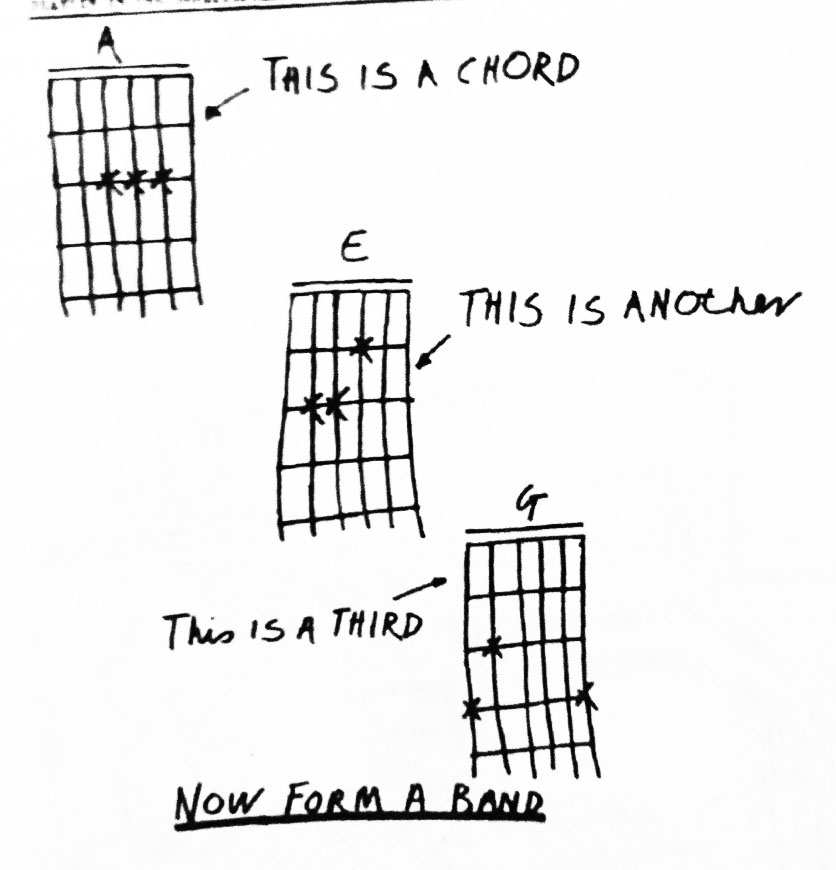 A
THIS IS A CHORD
E
THIS IS ANOther
G
This IS A THIRD
NOW FORM A BAND